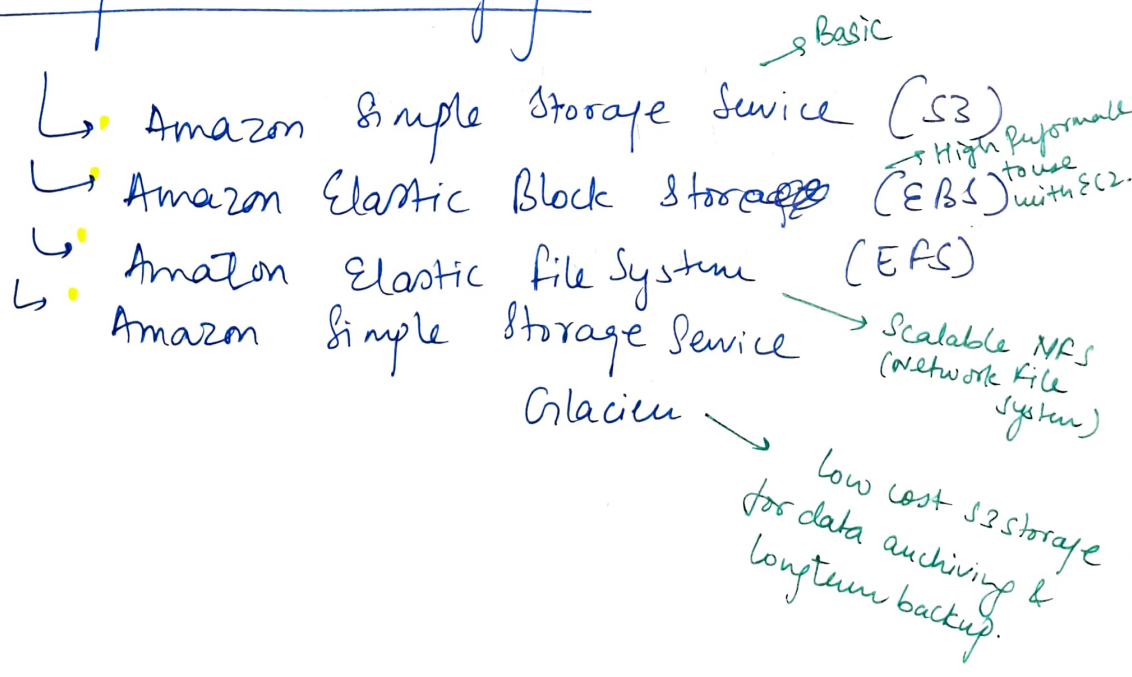 Basic
Amazon Simple Storage Service (S3)
High Performance
to use
with EC2.
Amazon Elastic Block Store (EBS)
Amazon Elastic File System (EFS)
Scalable NFS
(Network File
System)
Amazon Simple Storage Service
Glacier
Low cost S3 storage
for data archiving &
longterm backup.